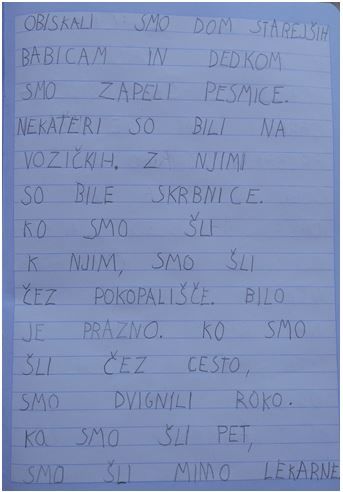 OBISKALI SMO DOM STAREJŠIH
BABICAM IN DEDKOM
SMO ZAPELI PESMICE.
NEKATERI SO BILI NA
VOZIČKIH. Z NJIMI
SO BILE SKRBNICE.
KO SMO ŠLI
K NJIM, SMO ŠLI
ČEZ POKOPALIŠČE. BILO
JE PRAZNO. KO SMO
ŠLI ČEZ CESTO,
SMO DVIGNILI ROKO.
KO SMO ŠLI PET,
SMO ŠLI MIMO LEKARNE